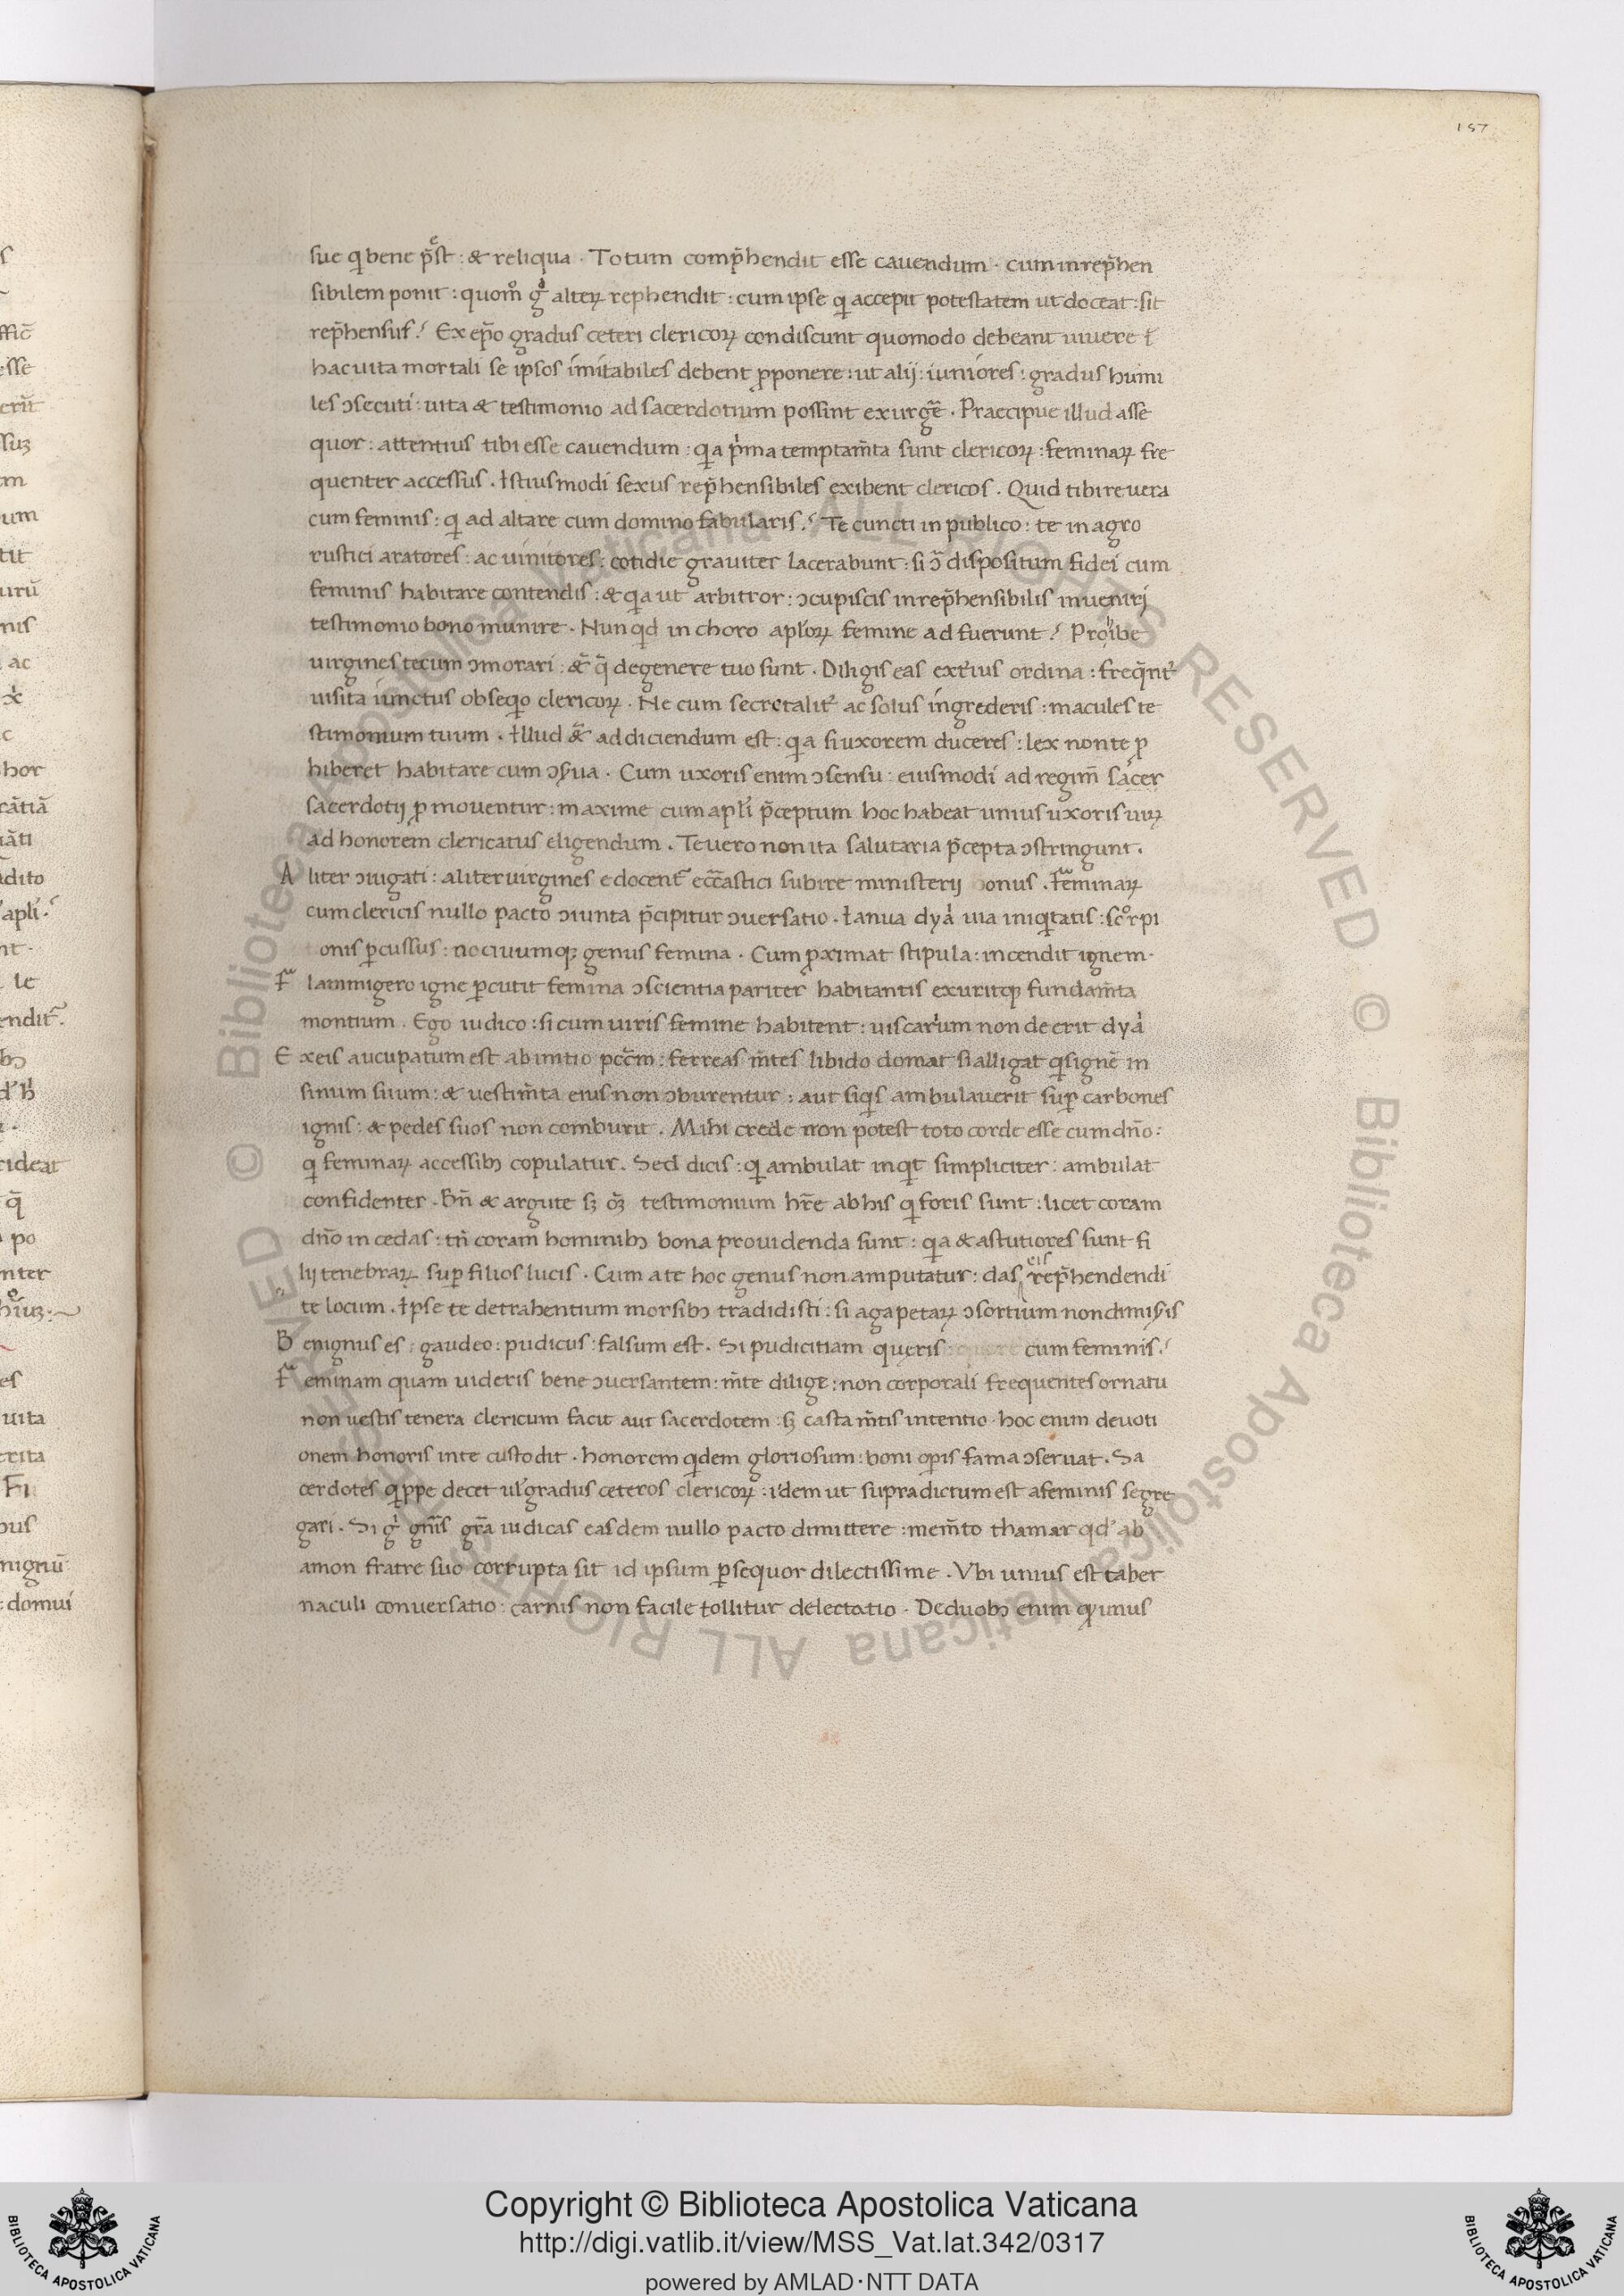 157
sue q bene p̄st : & reliqua · Totum comp̄hendit esse cauendum · cum inrep̄hen
sibilem ponit : quom̊ gͦ alteꝝ rephendit : cum ipse q accepit potestatem ut doceat : sit
rep̄hensus? Ex ep̄o gradus ceteri clericoꝝ condiscunt quomodo debeant uiuere ī
hac uita mortali se ipsos imitabiles debent ꝓponere : ut alij : iuniores : gradus humi
les ↄsecuti : uita & testimonio ad sacerdotium possint exurgē̄ · Praecipue illud asse
quor : attentius tibi esse cauendum : qa pͥma temptam̄ta sunt clericoꝝ : feminaꝝ fre
quenter accessus · Istiusmodi sexus rep̄hensibiles exibent clericos · Quid tibi reuera
cum feminis : q ad altare cum domino fabularis? Te cuncti in publico : te in agro
rustici aratores : ac uinitores : cotidie grauiter lacerabunt : si ↄ̄ dispositum fidei cum
feminis habitare contendis : & qa ut arbitror : ↄcupiscis inrep̄hensibilis inueniri
testimonio bono munire · Nunqd in choro apl̄oꝝ femine ad fuerunt? Proibe
uirgines tecum ↄmorari : &̄ q̄ de genere tuo sunt · Diligis eas ext̓ius ordina : freq̄nt̓
uisita iunctus obseqo clericoꝝ · Ne cum secretalit̓ ac solus ingrederis : macules te
stimonium tuum · Illud &̄ ad diciendum est : qa si uxorem duceres : lex non te ꝓ
hiberet habitare cum ↄsua · Cum uxoris enim ↄsensu : eiusmodi ad regim̄ sacer
sacerdotij ꝓmouentur : maxime cum apl̄i p̄ceptum hoc habeat unius uxoris uiꝝ
ad honorem clericatus eligendum · Te uero non ita salutaria p̄cepta ↄstringunt ·
A liter ↄiugati : aliter uirgines edocent̓ ecc̄astici subire ministerij onus · Feminaꝝ
cum clericis nullo pacto ↄiunta p̄cipitur ↄuersatio · Ianua dyāͥ uia iniqtatis : scorpi
onis ꝑcussus : nociuumq; genus femina · Cum ꝓximat stipula : incendit ignem ·
F lammigero igne ꝑcutit femina ↄscientia pariter habitantis exuritq; fundam̄ta
montium · Ego iudico : si cum uiris femine habitent : uiscarium non deerit dyaͥ
E x eis aucupatum est ab initio pcc̄m : ferreas m̄tes libido domat si alligat qs ignē in
sinum suum : & uestim̄ta eius non ↄburentur : aut siqs ambulauerit suꝑ carbones
ignis : & pedes suos non comburit · Mihi crede non potest toto corde esse cum dn̄o :
q feminaꝝ accessibꝫ copulatur · Sed dicis : q ambulat inqt simpliciter : ambulat
confidenter · Bn̄ & argute sꝫ oꝫ testimonium hr̄e ab his q foris sunt : licet coram
dn̄o incedas : tn̄ coram hominibꝫ bona prouidenda sunt : qa & astutiores sunt fi
lij tenebraꝝ suꝑ filios lucis · Cum a te hoc genus non amputatur : das eis rep̄hendendi
te locum · Ipse te detrahentium morsibꝫ tradidisti : si agapetaꝝ ↄsortium non dimisis
B enignus es : gaudeo : pudicus : falsum est · Si pudicitiam queris : cum feminis?
F eminam quam uideris bene ↄuersantem : m̄te dilige : non corporali frequentes ornatu
non uestis tenera clericum facit aut sacerdotem : sꝫ casta m̄tis intentio · hoc enim deuoti
onem honoris in te custodit · honorem qdem gloriosum : boni oꝑis fama ↄseruat · Sa
cerdotes qppe decet ul̓ gradus ceteros clericoꝝ : idem ut supradictum est a feminis segre
gari · Si gͥ gn̄is gr̄a iudicas easdem nullo pacto dimittere : mem̄to thamar qd̓ ab
amon fratre suo corrupta sit id ipsum ꝑsequor dilectissime · Vbi unius est taber
naculi conuersatio : carnis non facile tollitur delectatio · De duobꝫ enim unus
Copyright © Biblioteca Apostolica Vaticana
http://digi.vatlib.it/view/MSS_Vat.lat.342/0317
powered by AMLAD·NTT DATA
BIBLIOTECA APOSTOLICA VATICANA
BIBLIOTECA APOSTOLICA VATICANA
© Biblioteca Apostolica Vaticana ALL RIGHTS RESERVED © Biblioteca Apostolica Vaticana ALL RIGHTS RESERVED